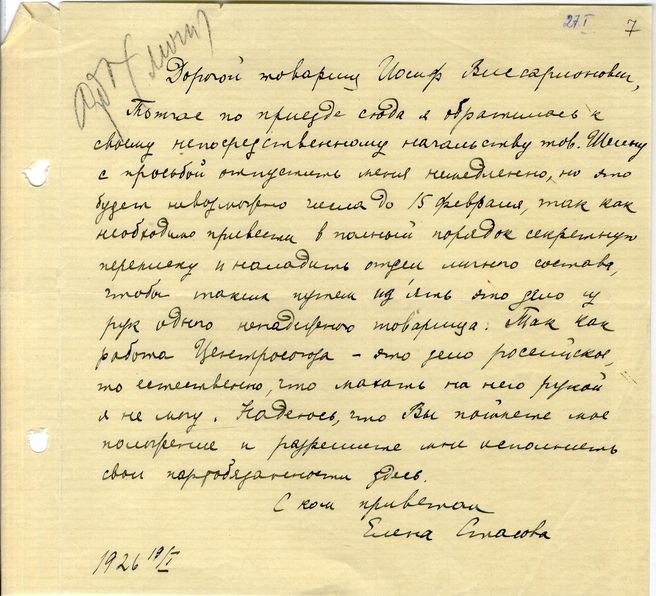 27 I 7
личн
Дорогой товарищ Иосиф Виссарионович,
Тотчас по приезде сюда я обратилась к
своему непосредственному начальству тов.
с просьбой отпустить меня немедленно, но это
будет невозможно числа до 15 февраля, так как
необходимо привести в полный порядок секретную
переписку и наладить отдел личного состава,
чтобы таким путем изъять это дело из
рук одного ненадежного товарища. Так как
работа Центросоюза – это дело российское,
то естественно, что махать на него рукой
я не могу. Надеюсь, что Вы поймете мое
положение и разрешите мне исполнить
свои партобязанности здесь.
С ком приветом
Елена Стасова
1926 19/I